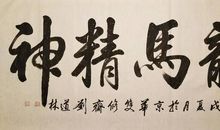 龍馬精神
戌夏月於京華雙修齋劉道林